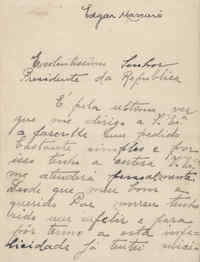 Edgar
Excelentissimo Senhor
Presidente da Republica
É pela
que me dirijo a V. Exª
a fazer-lhe um pedido
bastante simples e por
isso tenho a certeza V. Exª
me atenderá pessoalmente.
Desde que meu bom e
querido Pai morreu tenho
sido um infeliz e para
pôr termo a esta infe-
licidade já